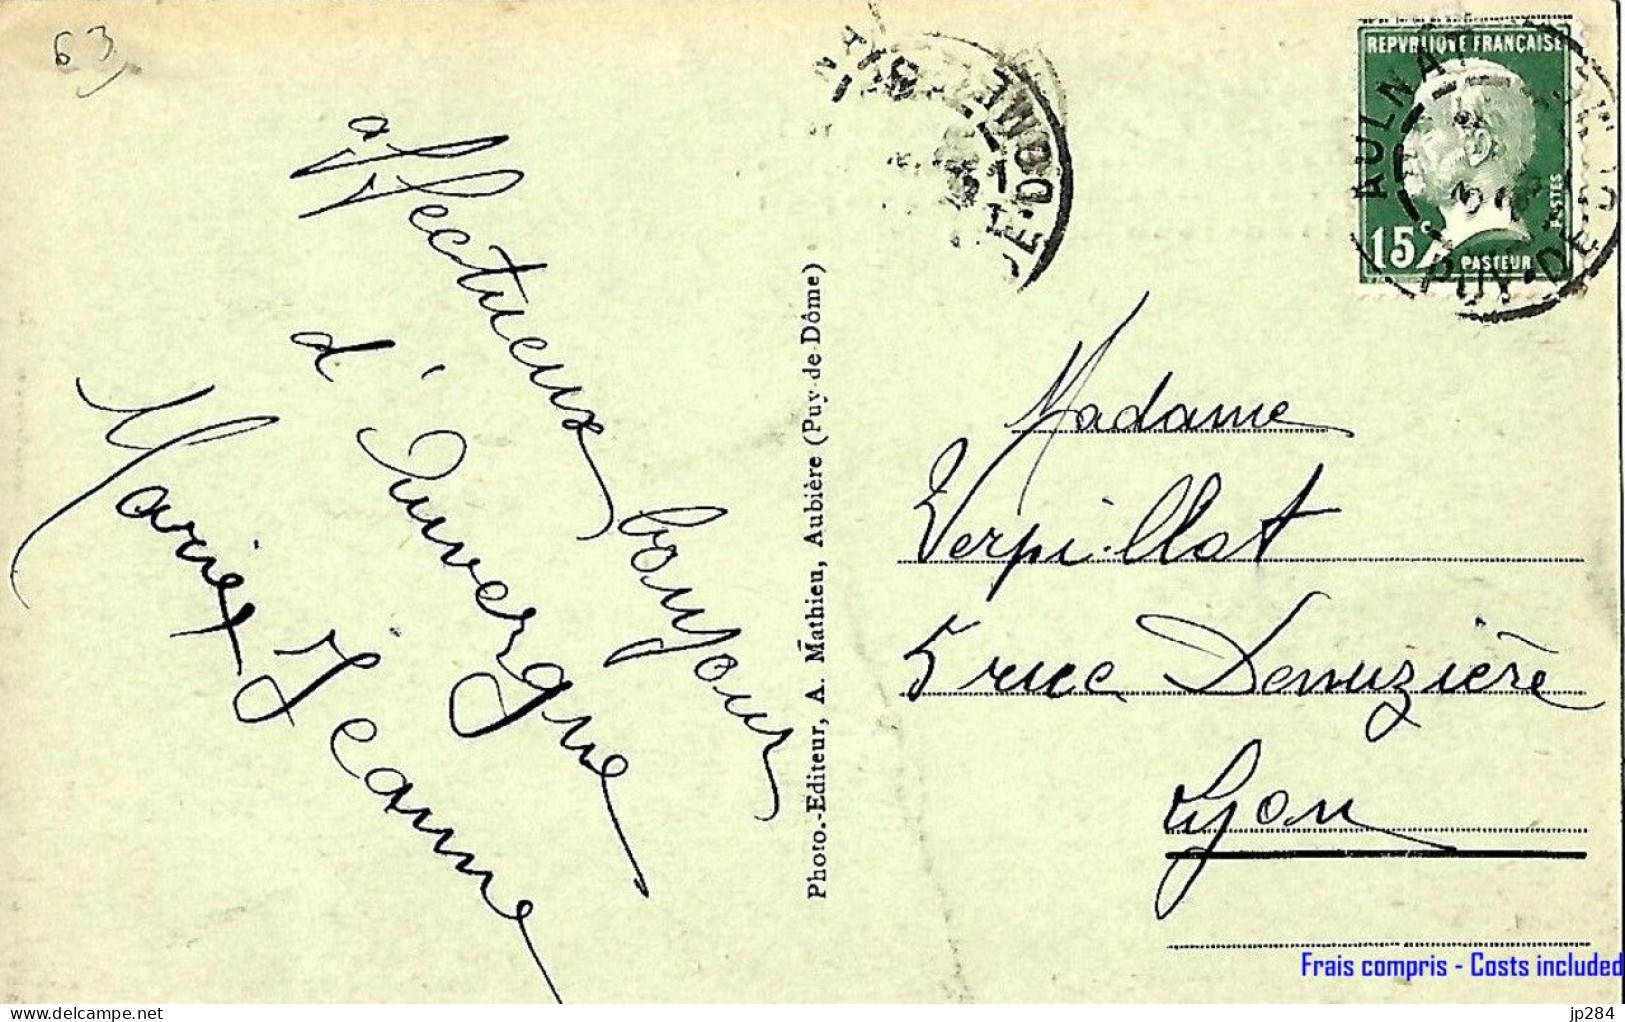 63
affectueux bonjour
d'Auvergne
Marie Jeanne
Photo.-Editeur, A. Mathieu, Aubière (Puy-de-Dôme)
REPVBLIQVE FRANÇAISE
POSTES
15c
PASTEUR
AULNAT
PUY-DE-DOME
Madame
Verpillat
5 rue Denuzière
Lyon
Frais compris - Costs included
www.delcampe.net
jp284